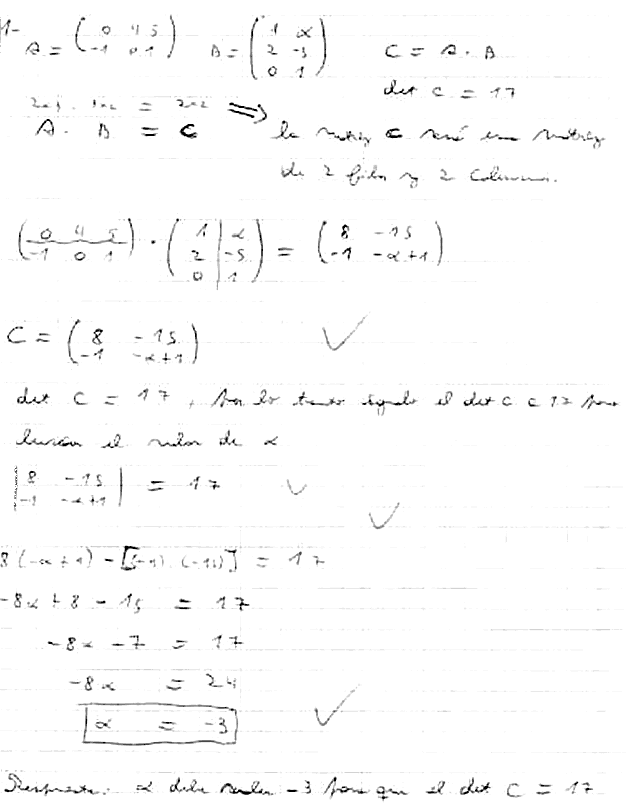 1- A = ( 0 4 5 / -1 0 1 ) B = ( 1 α / 2 -5 / 0 1 ) C = A · B
det C = 17
2x3 . 3x2 = 2x2 ⟹
A . B = C la matriz C será una matriz
de 2 filas y 2 columnas.
( 0 4 5 / -1 0 1 ) · ( 1 α / 2 -5 / 0 1 ) = ( 8 -15 / -1 -α+1 )
C = ( 8 -15 / -1 -α+1 ) ✓
det C = 17, por lo tanto igualo el det C a 17 para
buscar el valor de α
| 8 -15 / -1 -α+1 | = 17 ✓
✓
8(-α+1) - [(-1) · (-15)] = 17
-8α + 8 - 15 = 17
-8α - 7 = 17
-8α = 24
α = -3 ✓
Respuesta: α debe valer -3 para que el det C = 17